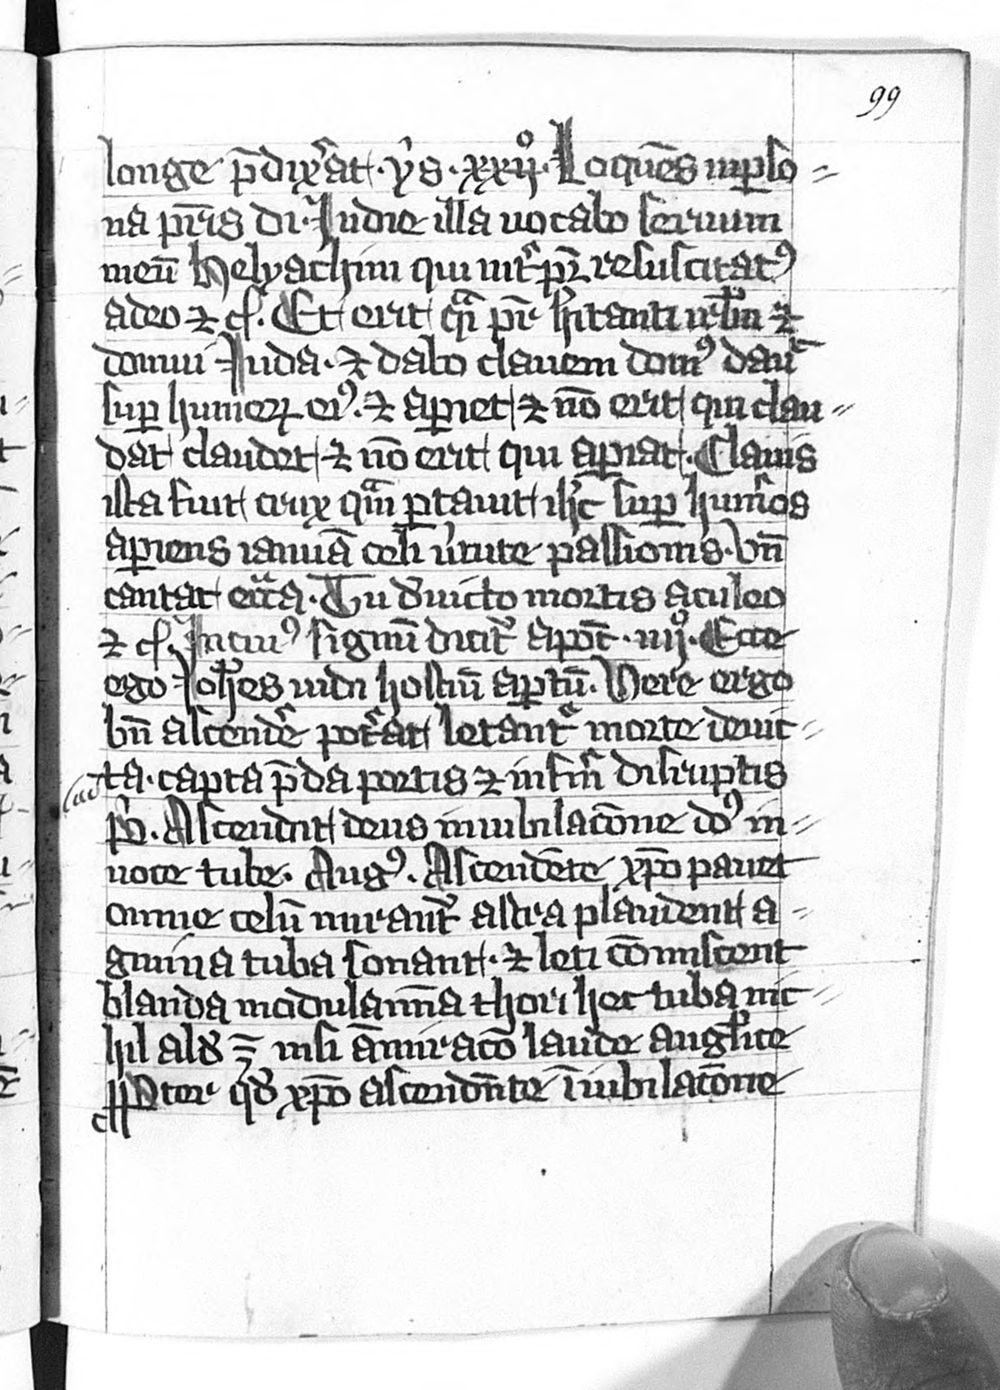 99
longe p̄dix̄at · ys · xxij · Loquēs in p̱so=
na pr̄is di · In die illa uocabo seruum
meū Helyachim qui int̄pr̄ resuscitat⁹
a deo ⁊ cꝭ. Et erit q̄i pr̄ hītanti irl̄m ⁊
domui Juda · ⁊ dabo clauem dom⁹ dauid
suꝑ humeꝝ ei⁹ · ⁊ aꝑiet ⁊ nō erit qui clau=
dat claudet ⁊ nō erit qui aꝑiat · Clauis
ista fuit crux quā ꝑtauit ih̄c suꝑ hum̄os
aꝑiens ianuā celi u̓tute passionis · Vn̄
cantat ecc̄a · Tu deuicto mortis aculeo
⁊ cꝭ. In cui⁹ signū dicit̄ apoc̄ · iiij · Ecce
ego Joh̄es uidi hostiū aꝑtū · Vere ergo
bn̄ ascend̄e pot̄at letant̄ morte deuic=
ta · capta p̄da portis ⁊ infn̄i disruptis
p̄s · Ascendit deus in iubilacōne ⁊ do⁹ in=
uoce tube · Aug⁹ · Ascendēte xp̄o pauet
omne celū mirant̄ astra plaudent a=
gmina tuba sonant · ⁊ leti cōmiscent
blanda modulamīa chori hec tuba nic=
hil aliud ē nisi āmiracō laude angl̄ice
ꝓpter quod xp̄o ascendēte ī iubilacōne